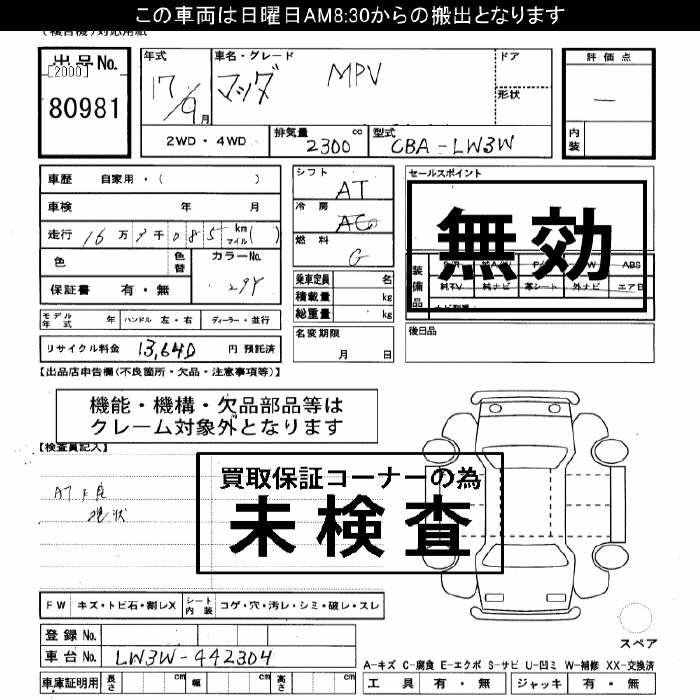 この車両は日曜日AM8:30からの搬出となります
(複合機)対応用紙
出品No.
[2000]
80981
年式
17/9月
車名・グレード
マツダ MPV
ドア
形状
評価点
―
内装
2WD・4WD
排気量 2300 cc
型式 CBA-LW3W
車歴 自家用・( )
車検 年 月
色
色替
カラーNo.
29Y
保証書 有・無
モデル年式 年
ハンドル 左・右
ディーラー・並行
リサイクル料金 13,640 円 預託済
シフト AT
冷房 AC
燃料 G
乗車定員 名
積載量 kg
総重量 kg
名変期限
月 日
セールスポイント
無効
装備品
ABS
純TV 純ナビ 革シート 外ナビ エア日
後日品
【出品店申告欄(不良箇所・欠品・注意事項等)】
機能・機構・欠品部品等は
クレーム対象外となります
【検査員記入】
買取保証コーナーの為
未検査
AT不良
現状
FW キズ・トビ石・割レX
シート内装 コゲ・穴・汚レ・シミ・破レ・スレ
登録No.
車台No. LW3W-442304
車庫証明用 長さ cm 幅 cm 高さ cm
スペア
A-キズ C-腐食 E-エクボ S-サビ U-凹ミ W-補修 XX-交換済
工具 有・無 ジャッキ 有・無